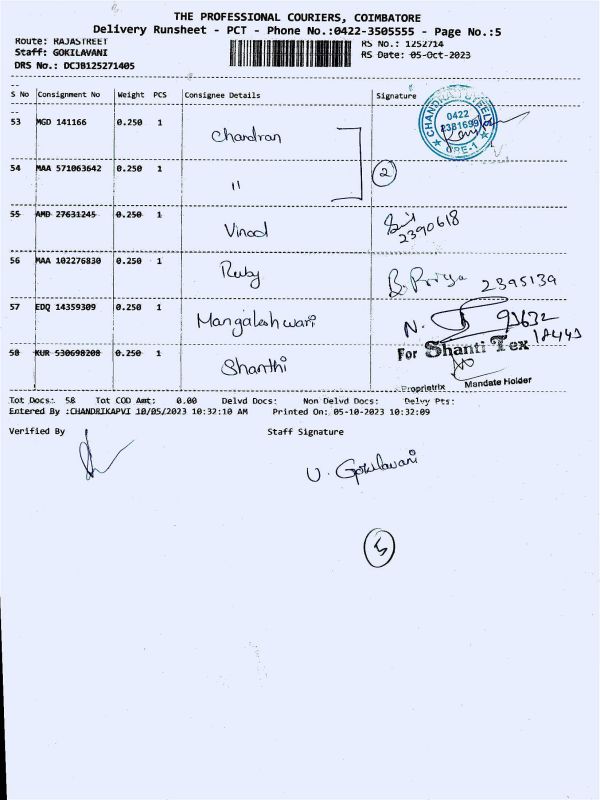 THE PROFESSIONAL COURIERS, COIMBATORE
Delivery Runsheet - PCT - Phone No.:0422-3505555 - Page No.:5
Route: RAJASTREET
Staff: GOKILAVANI
DRS No.: DCJB125271405
RS No.: 1252714
RS Date: 05-Oct-2023
S No Consignment No Weight PCS Consignee Details Signature
53 MGD 141166 0.250 1 Chandran
CHANDRA 0422 2381699 OPE-1
54 MAA 571063642 0.250 1 " 2
55 AMD 27631245 0.250 1 Vinod 2390618
56 MAA 102276830 0.250 1 Ruby B. Priya 2395139
57 EDQ 14359309 0.250 1 Mangaleshwari N.
58 KUR 530698208 0.250 1 Shanthi For Shanti Tex
Proprietrix Mandate Holder
Tot Docs.: 58 Tot COD Amt: 0.00 Delvd Docs: Non Delvd Docs: Delvy Pts:
Entered By :CHANDRIKAPVI 10/05/2023 10:32:10 AM Printed On: 05-10-2023 10:32:09
Verified By Staff Signature
V. Gokilavani
5